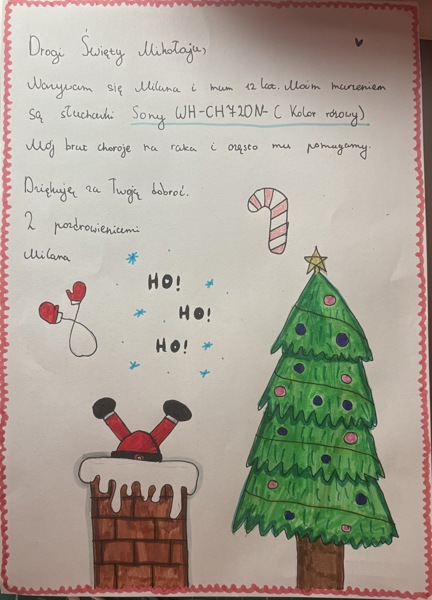 Drogi Święty Mikołaju,
Nazywam się Milana i mam 12 lat. Moim marzeniem
są słuchawki Sony WH-CH720N- ( Kolor różowy)
Mój brat choruje na raka i często mu pomagamy.
Dziękuję za Twoją dobroć.
Z pozdrowieniami
Milana
HO!
HO!
HO!